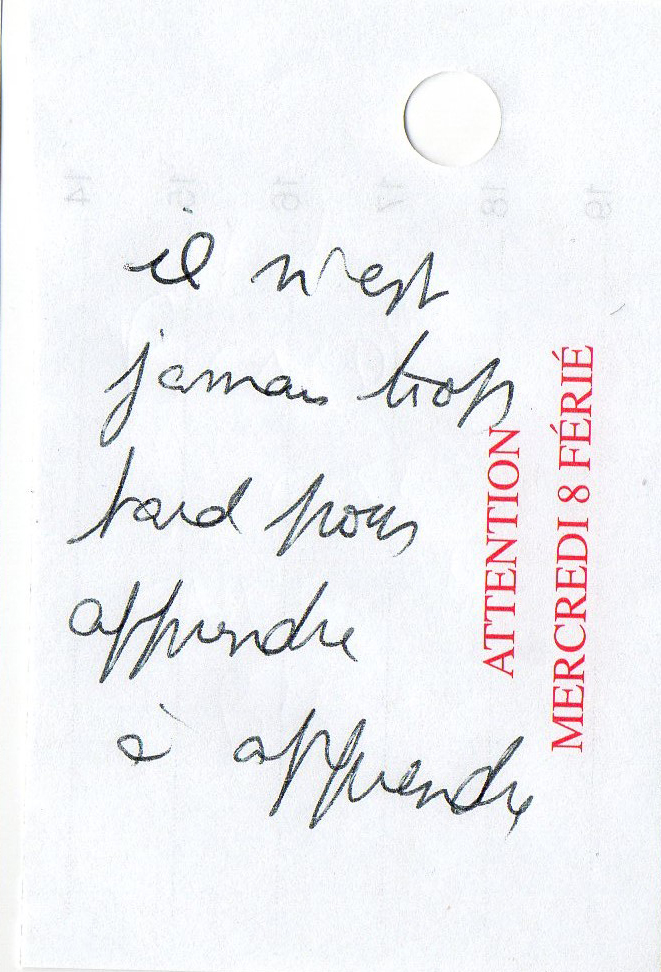 il n'est
jamais trop
tard pour
apprendre
à apprendre
ATTENTION
MERCREDI 8 FÉRIÉ
14 15 16 17 18 19